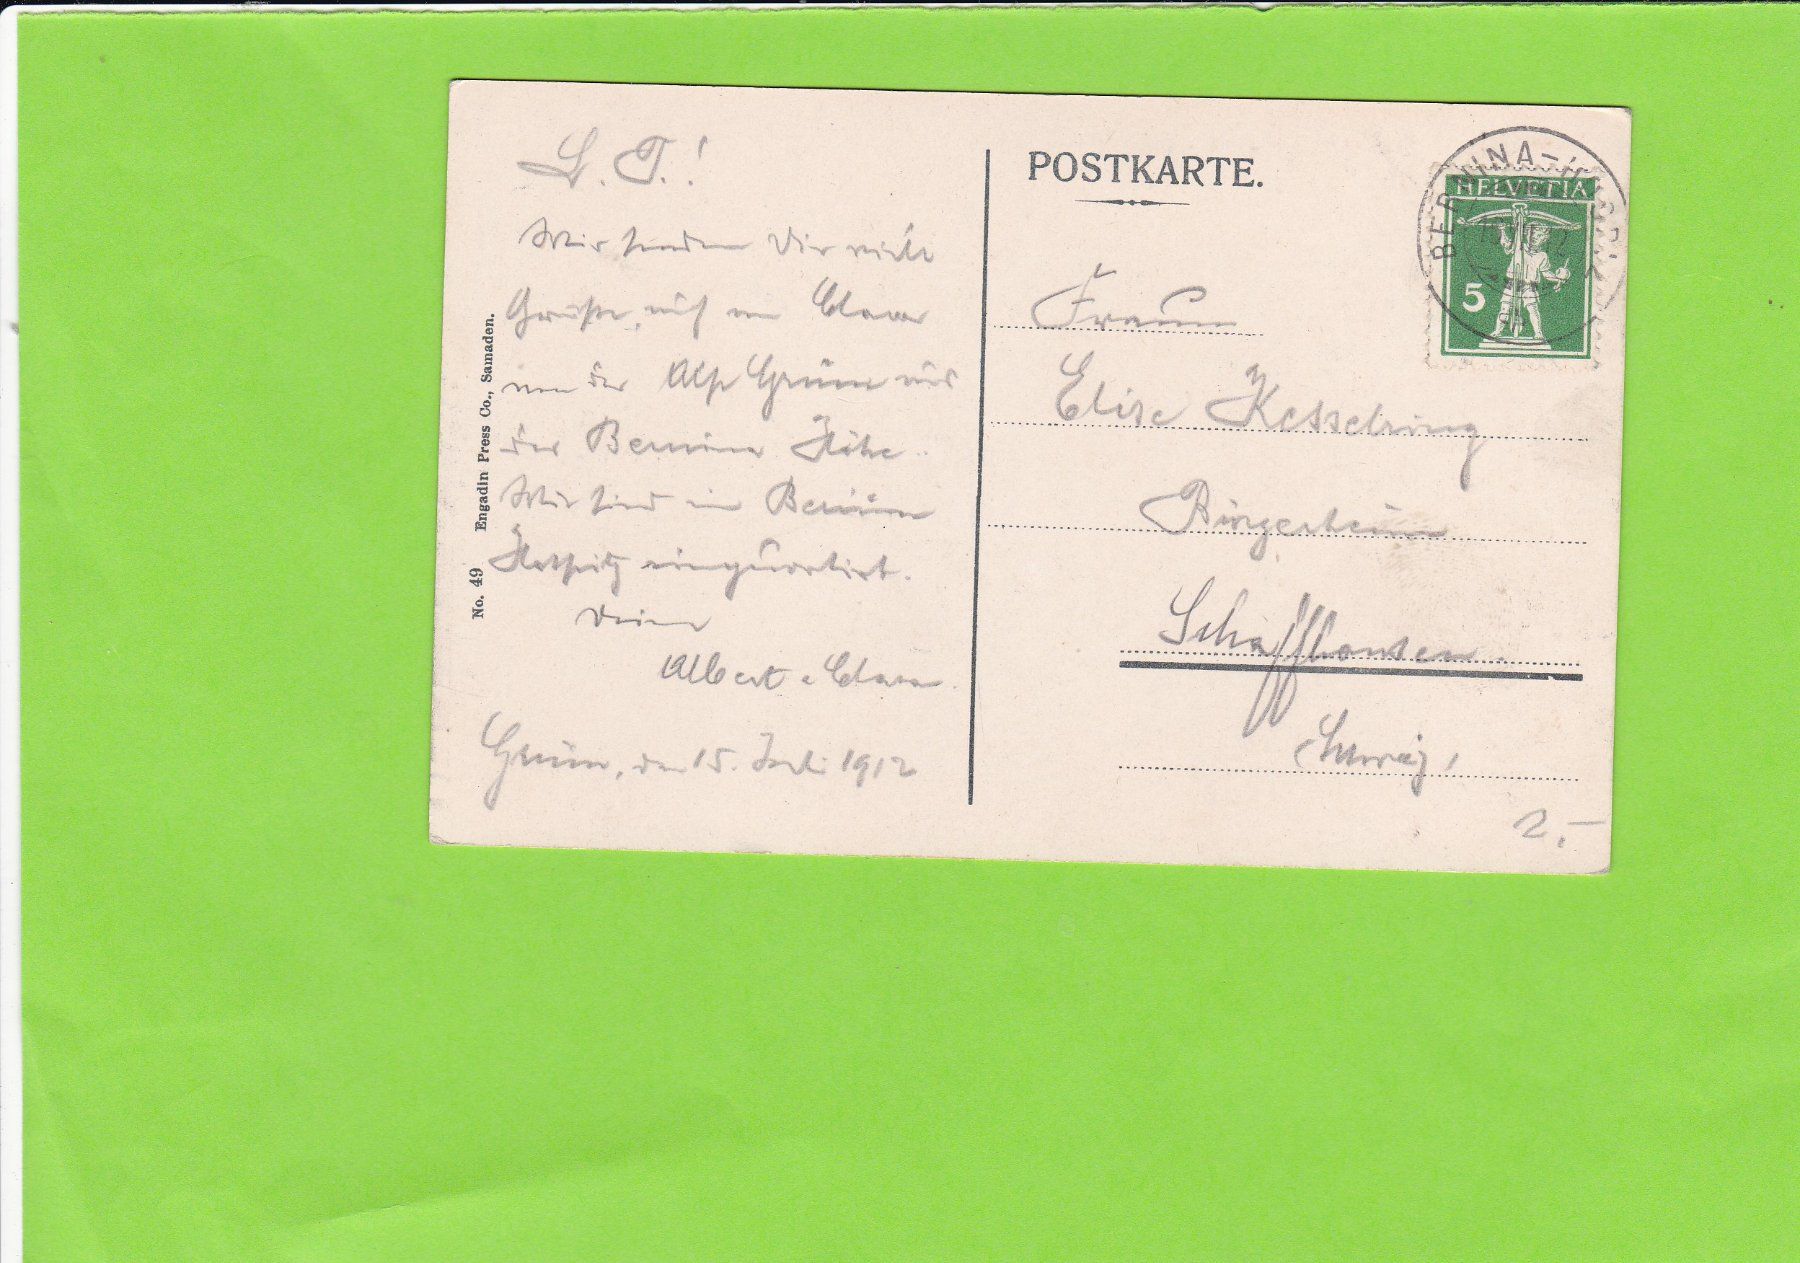 L. T.!
Wir senden Dir viele
Grüße, auch an Clara
von der Alp Grüm und
der Bernina Höhe.
Wir sind im Bernina
Hospitz einquartirt.
Dein
Albert & Clara.
Grüm, den 15. Juli 1912
No. 49 Engadin Press Co., Samaden.
POSTKARTE.
BERNINA-
HELVETIA
5
Frau
Elise Kesselring
Bürgerheim
Schaffhausen.
(Schweiz)
2.-